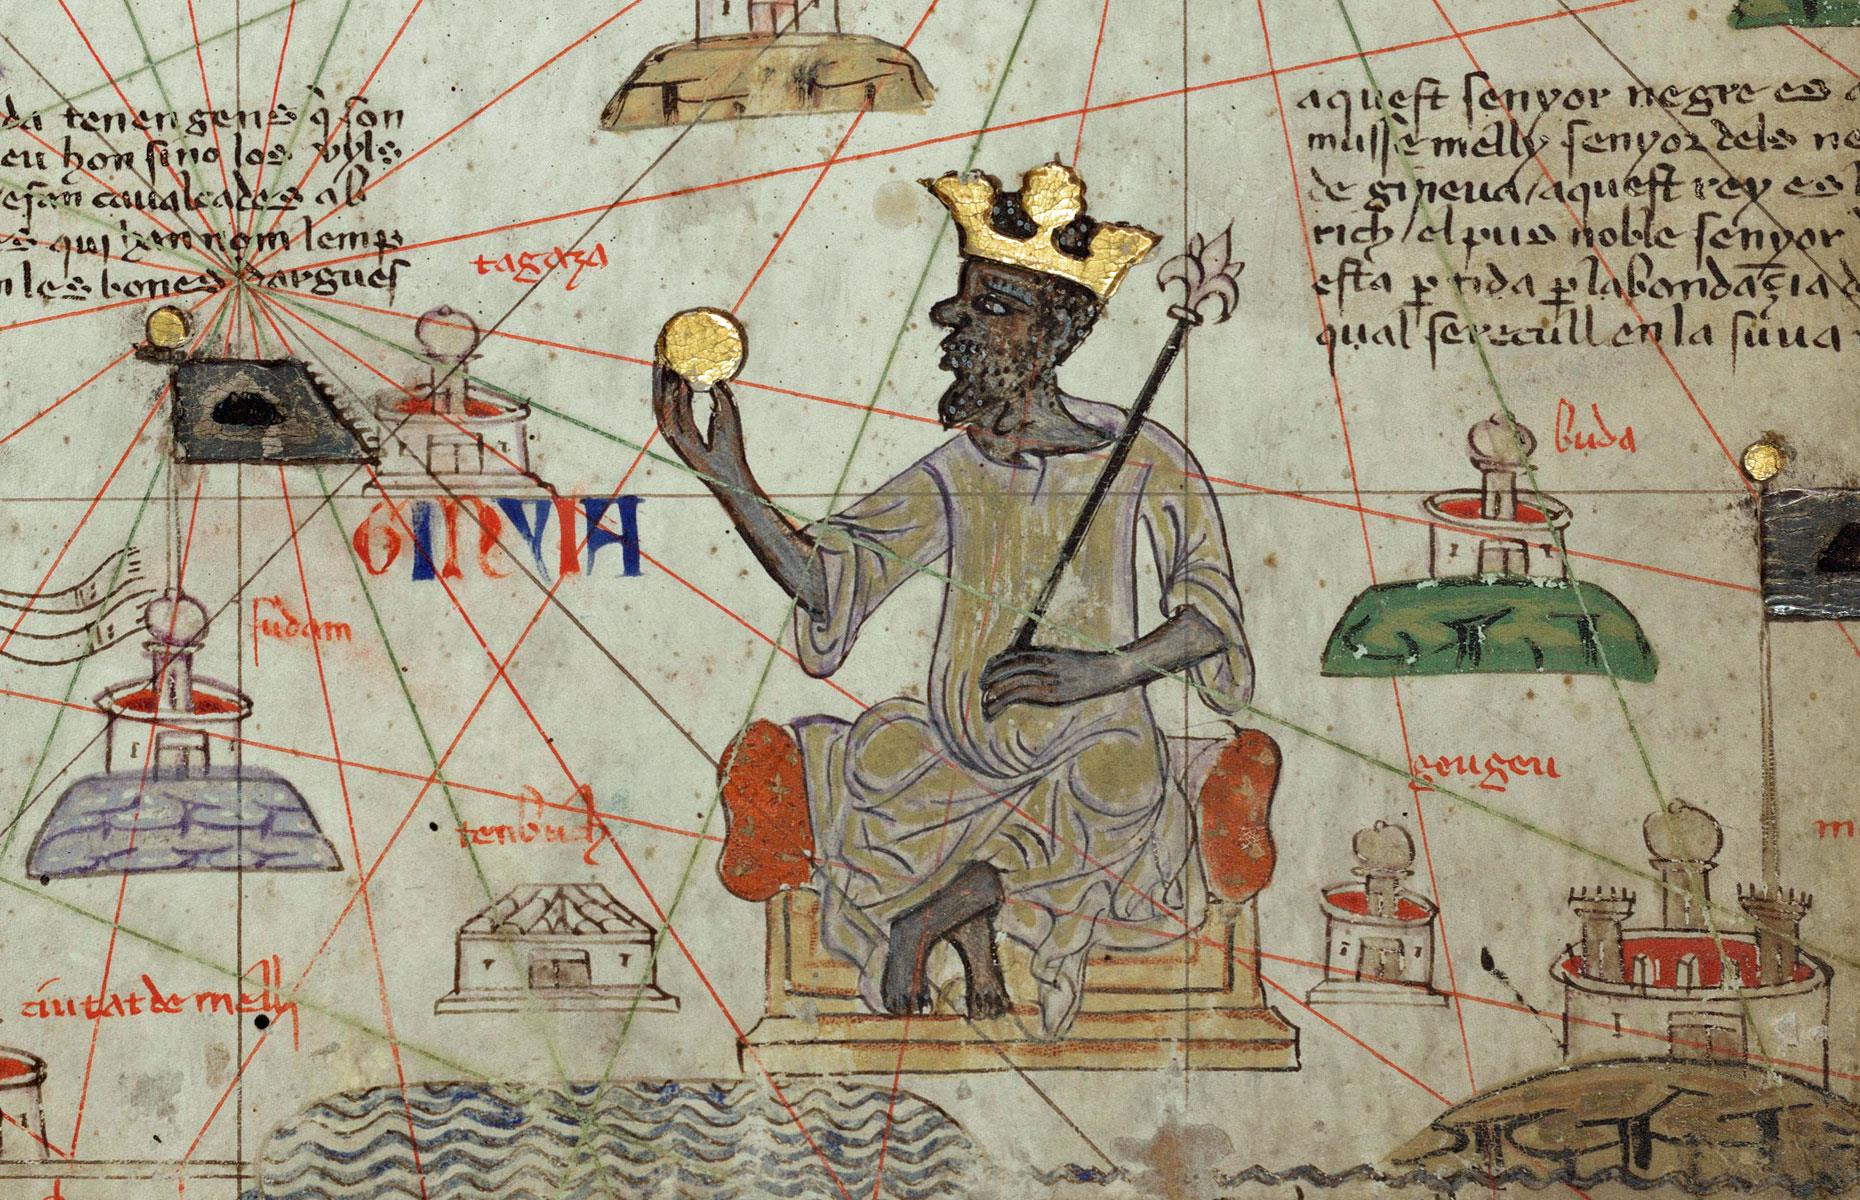 da tenen gens q̃ son
eu hon sino los vyls
e fan caualcades ab
s qui han nom lemp
n les bones dargues
tagaza
aquest senyor negre es
musse melly senyor dels ne
de gineua/aquest rey es l
rich/el pus noble senyor
esta ꝑtida ꝑ labondaçia d
qual se recull en la suua
buda
GINYIA
sudam
tenbuch
geugeu
ciutat de melly
m